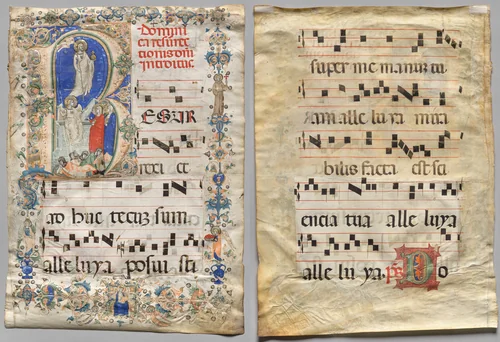 Domini
ca resurrec
tionis dni
introitus
RESVR
rexi et
ad huc tecum sum
alle luya posui sti
super me manum tu
am alle luya mira
bilis facta est sci
encia tua alle luya
alle lu ya. ps Do